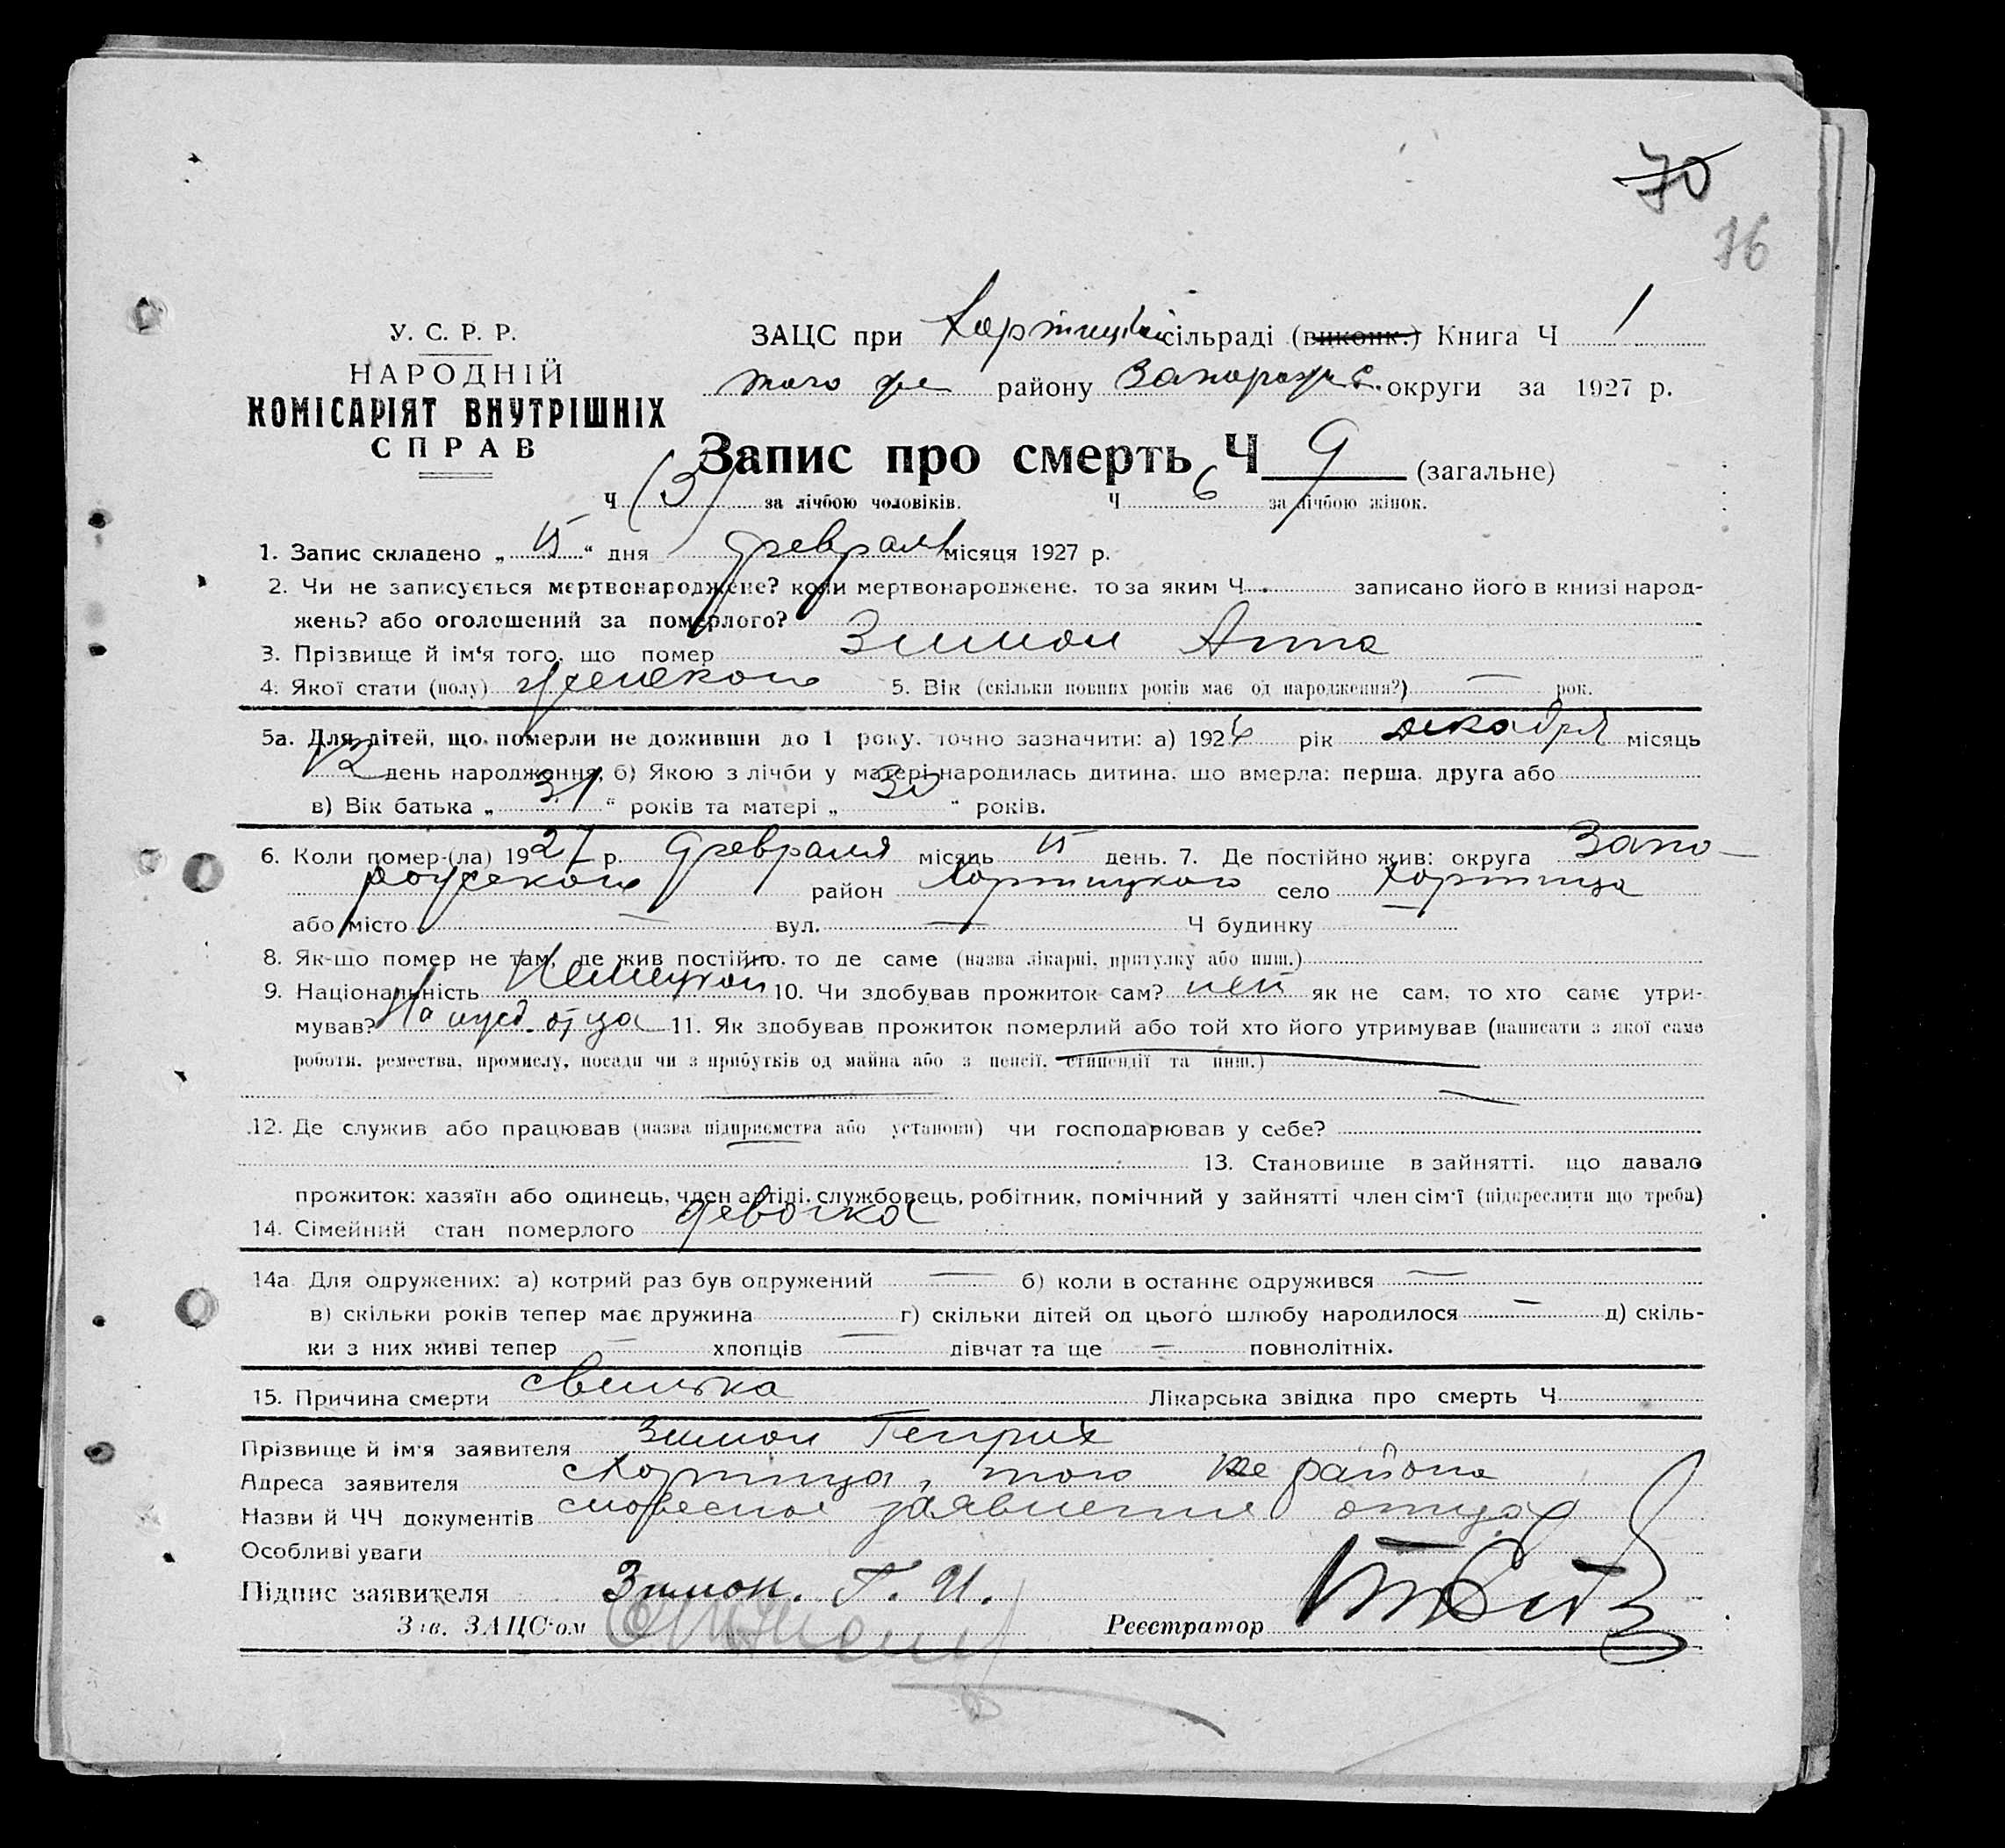 70
16
У. С. Р. Р.
НАРОДНІЙ
КОМІСАРІЯТ ВНУТРІШНІХ
СПРАВ
ЗАЦС при Хортицкій сільраді (виконк.) Книга Ч 1
того же району Запорожс. округи за 1927 р.
Запис про смерть Ч 9 (загальне)
Ч (3) за лічбою чоловіків. Ч 6 за лічбою жінок.
1. Запис складено „ 15 “ дня февраля місяця 1927 р.
2. Чи не записується мертвонароджене? коли мертвонароджене, то за яким Ч. записано його в книзі народ-
жень? або оголошений за померлого?
3. Прізвище й ім‘я того, що помер Зимон Анна
4. Якої стати (полу) женского 5. Вік (скільки повних років має од народження?) — рок.
5а. Для дітей, що померли не доживши до 1 року, точно зазначити: а) 1926 рік декабря місяць
12 день народження, б) Якою з лічби у матері народилась дитина, що вмерла: перша, друга або
в) Вік батька „ 31 “ років та матері „ 30 “ років.
6. Коли помер-(ла) 1927 р. февраля місяць 15 день. 7. Де постійно жив: округа Запо-
рожского район Хортицкого село Хортица
або місто — вул. — Ч будинку —
8. Як-що помер не там, де жив постійно, то де саме (назва лікарні, притулку або инш.)
9. Національність Немецкой 10. Чи здобував прожиток сам? нет як не сам, то хто саме утри-
мував? На ижд. отца 11. Як здобував прожиток померлий або той хто його утримував (написати з якої саме
роботи, ремества, промислу, посади чи з прибутків од майна або з пенсії, стипендії та инш.) —
— —
12. Де служив або працював (назва підприємства або установи) чи господарював у себе?
13. Становище в зайнятті, що давало
прожиток: хазяїн або одинець, член артілі, службовець, робітник, помічний у зайнятті член сім‘ї (підкреслити що треба)
14. Сімейний стан померлого девочка
14а Для одружених: а) котрий раз був одружений — б) коли в останнє одружився —
в) скільки років тепер має дружина г) скільки дітей од цього шлюбу народилося — д) скіль-
ки з них живі тепер — хлопців — дівчат та ще — повнолітніх.
15. Причина смерти свинка Лікарська звідка про смерть Ч
Прізвище й ім‘я заявителя Зимон Генрих
Адреса заявителя Хортица, того же района
Назви й ЧЧ документів словесное заявление отца
Особливі уваги
Підпис заявителя Зимон. Г. И.
Зав. ЗАЦС‘ом Реєстратор